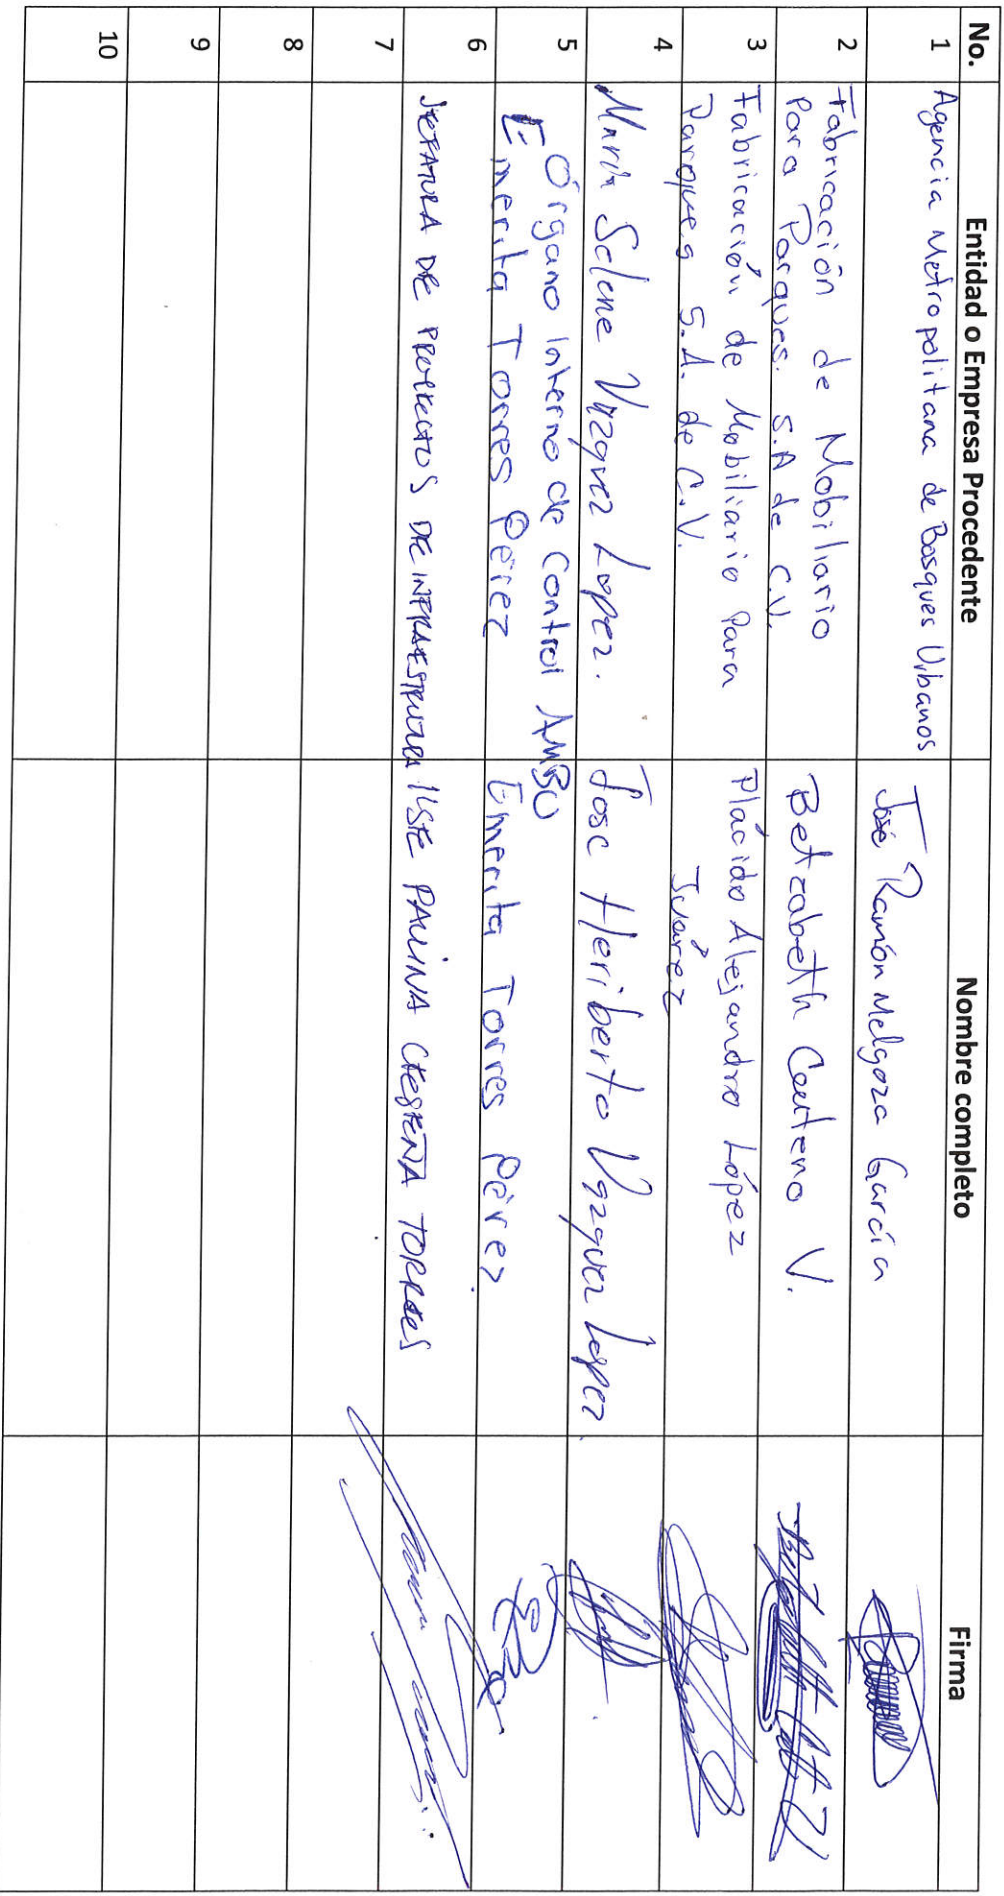 No. Entidad o Empresa Procedente Nombre completo Firma
1 Agencia Metropolitana de Bosques Urbanos José Ramón Melgoza García
2 Fabricación de Mobiliario
Para Parques. S.A de C.V. Betzabeth Centeno V.
3 Fabricación de Mobiliario Para
Parques S.A. de C.V. Plácido Alejandro López
Juárez
4 Maria Selene Vazquez Lopez. Jose Heriberto Vazquez Lopez.
5 Órgano Interno de Control AMBU
Emerita Torres Pérez Emerita Torres Pérez
6 JEFATURA DE PROYECTOS DE INFRAESTRUCTURA ILSE PAULINA TORRES
7
8
9
10